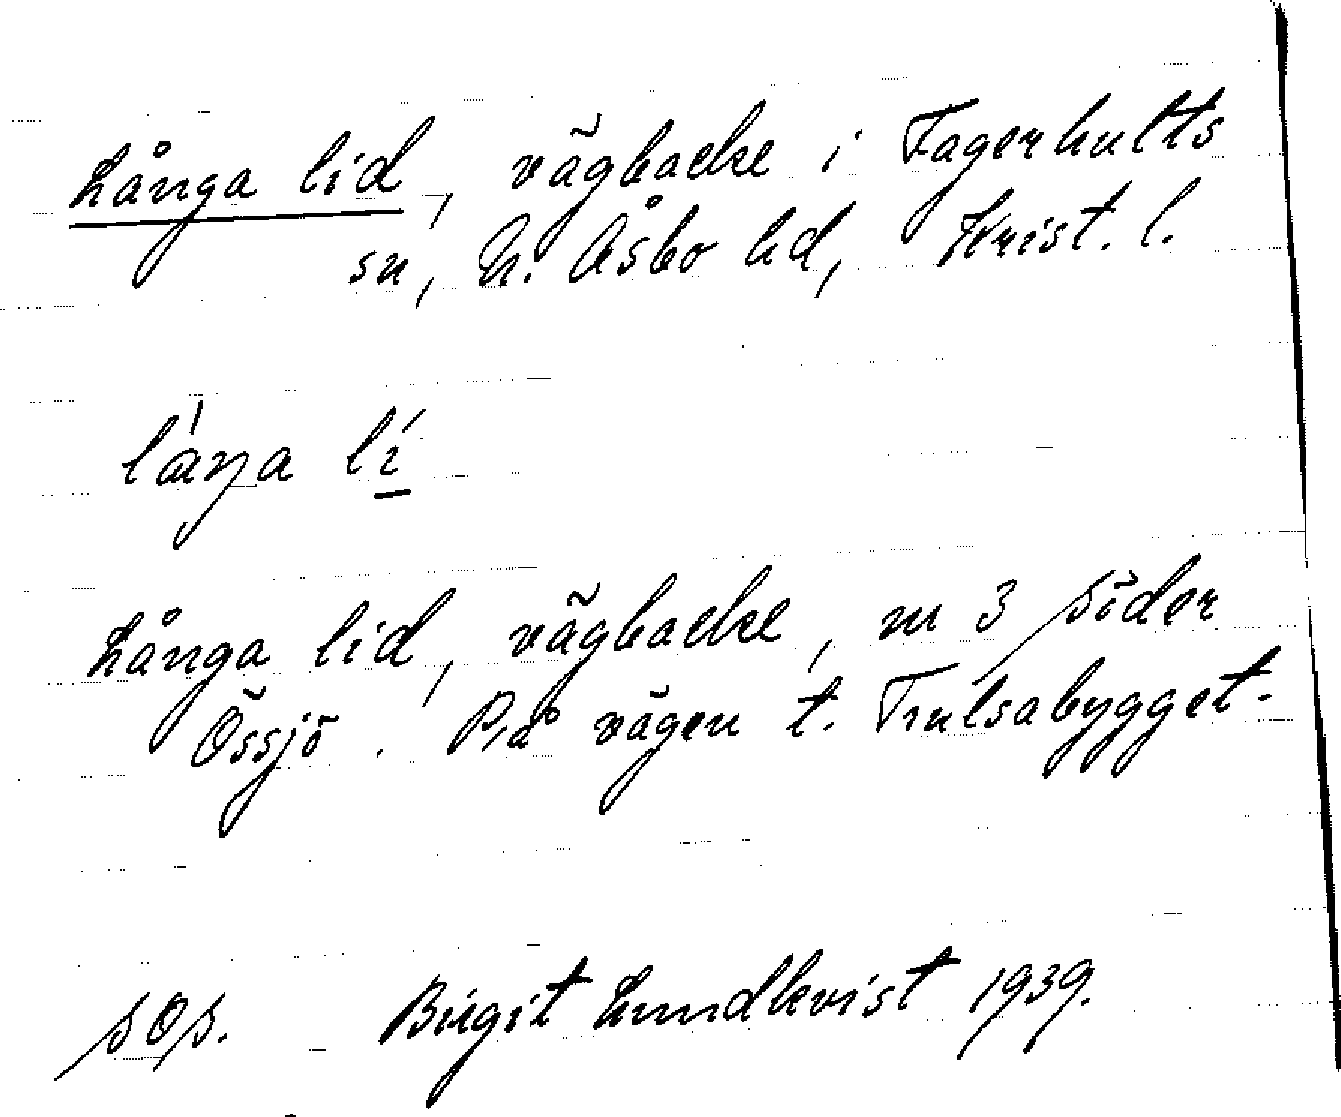 Långa lid, vägbacke i Fagerhults
sn, N. Åsbo hd, Krist. l.
låŋa lí
Långa lid, vägbacke, m 3 söder
Össjö. På vägen t. Trulsabygget.
sOs. Birgit Lundkvist 1939.